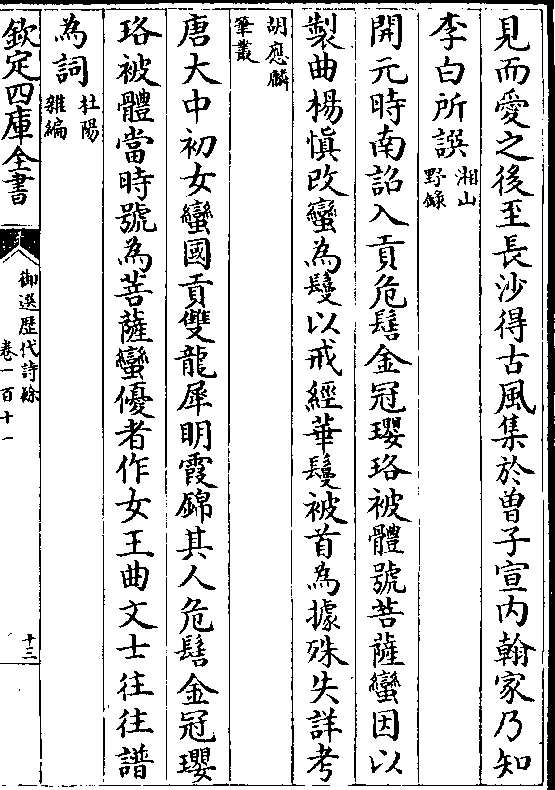 見而愛之後至長沙得古風集於曾子宣内翰家乃知
李白所譔湘山
野錄
開元時南詔入貢危髻金冠瓔珞被體號菩薩蠻因以
製曲楊愼改蠻為鬘以戒經華鬘被首為據殊失詳考
胡應麟
筆叢
唐大中初女蠻國貢雙龍犀明霞錦其人危髻金冠瓔
珞被體當時號為菩薩蠻優者作女王曲文士往往譜
為詞杜陽
雜編
欽定四庫全書
御選歷代詩餘
卷一百十一
十三